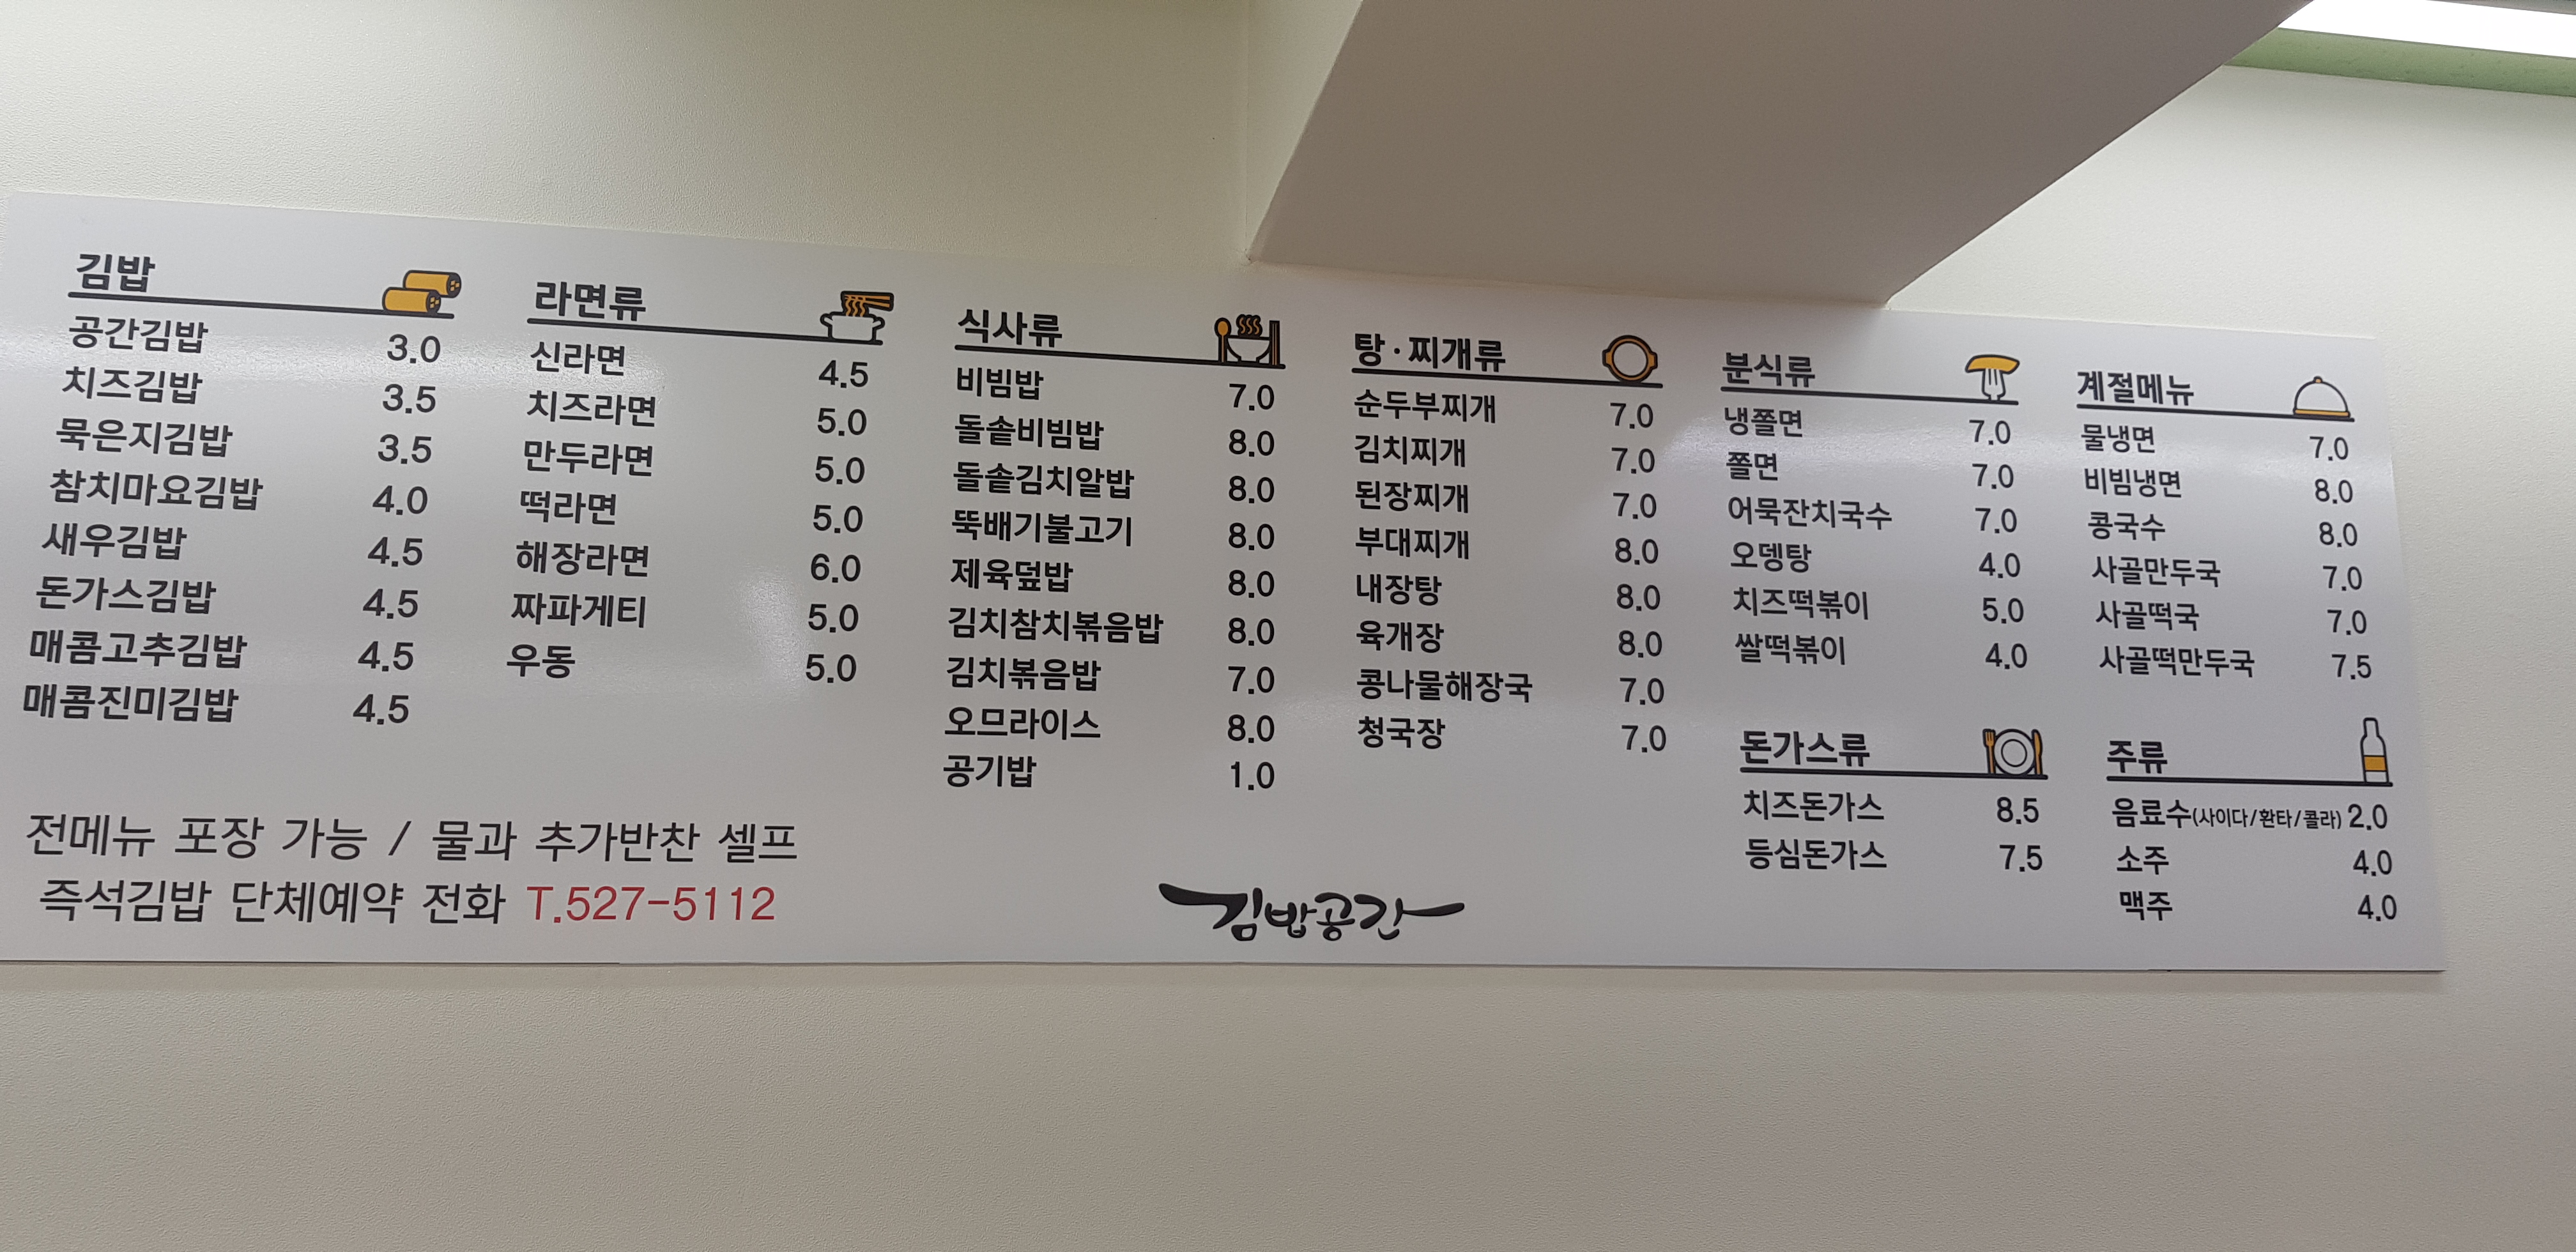 김밥
공간김밥 3.0
치즈김밥 3.5
묵은지김밥 3.5
참치마요김밥 4.0
새우김밥 4.5
돈가스김밥 4.5
매콤고추김밥 4.5
매콤진미김밥 4.5
라면류
신라면 4.5
치즈라면 5.0
만두라면 5.0
떡라면 5.0
해장라면 6.0
짜파게티 5.0
우동 5.0
식사류
비빔밥 7.0
돌솥비빔밥 8.0
돌솥김치알밥 8.0
뚝배기불고기 8.0
제육덮밥 8.0
김치참치볶음밥 8.0
김치볶음밥 7.0
오므라이스 8.0
공기밥 1.0
탕·찌개류
순두부찌개 7.0
김치찌개 7.0
된장찌개 7.0
부대찌개 8.0
내장탕 8.0
육개장 8.0
콩나물해장국 7.0
청국장 7.0
분식류
냉쫄면 7.0
쫄면 7.0
어묵잔치국수 7.0
오뎅탕 4.0
치즈떡볶이 5.0
쌀떡볶이 4.0
돈가스류
치즈돈가스 8.5
등심돈가스 7.5
계절메뉴
물냉면 7.0
비빔냉면 8.0
콩국수 8.0
사골만두국 7.0
사골떡국 7.0
사골떡만두국 7.5
주류
음료수(사이다/환타/콜라) 2.0
소주 4.0
맥주 4.0
전메뉴 포장 가능 / 물과 추가반찬 셀프
즉석김밥 단체예약 전화 T.527-5112
김밥공간